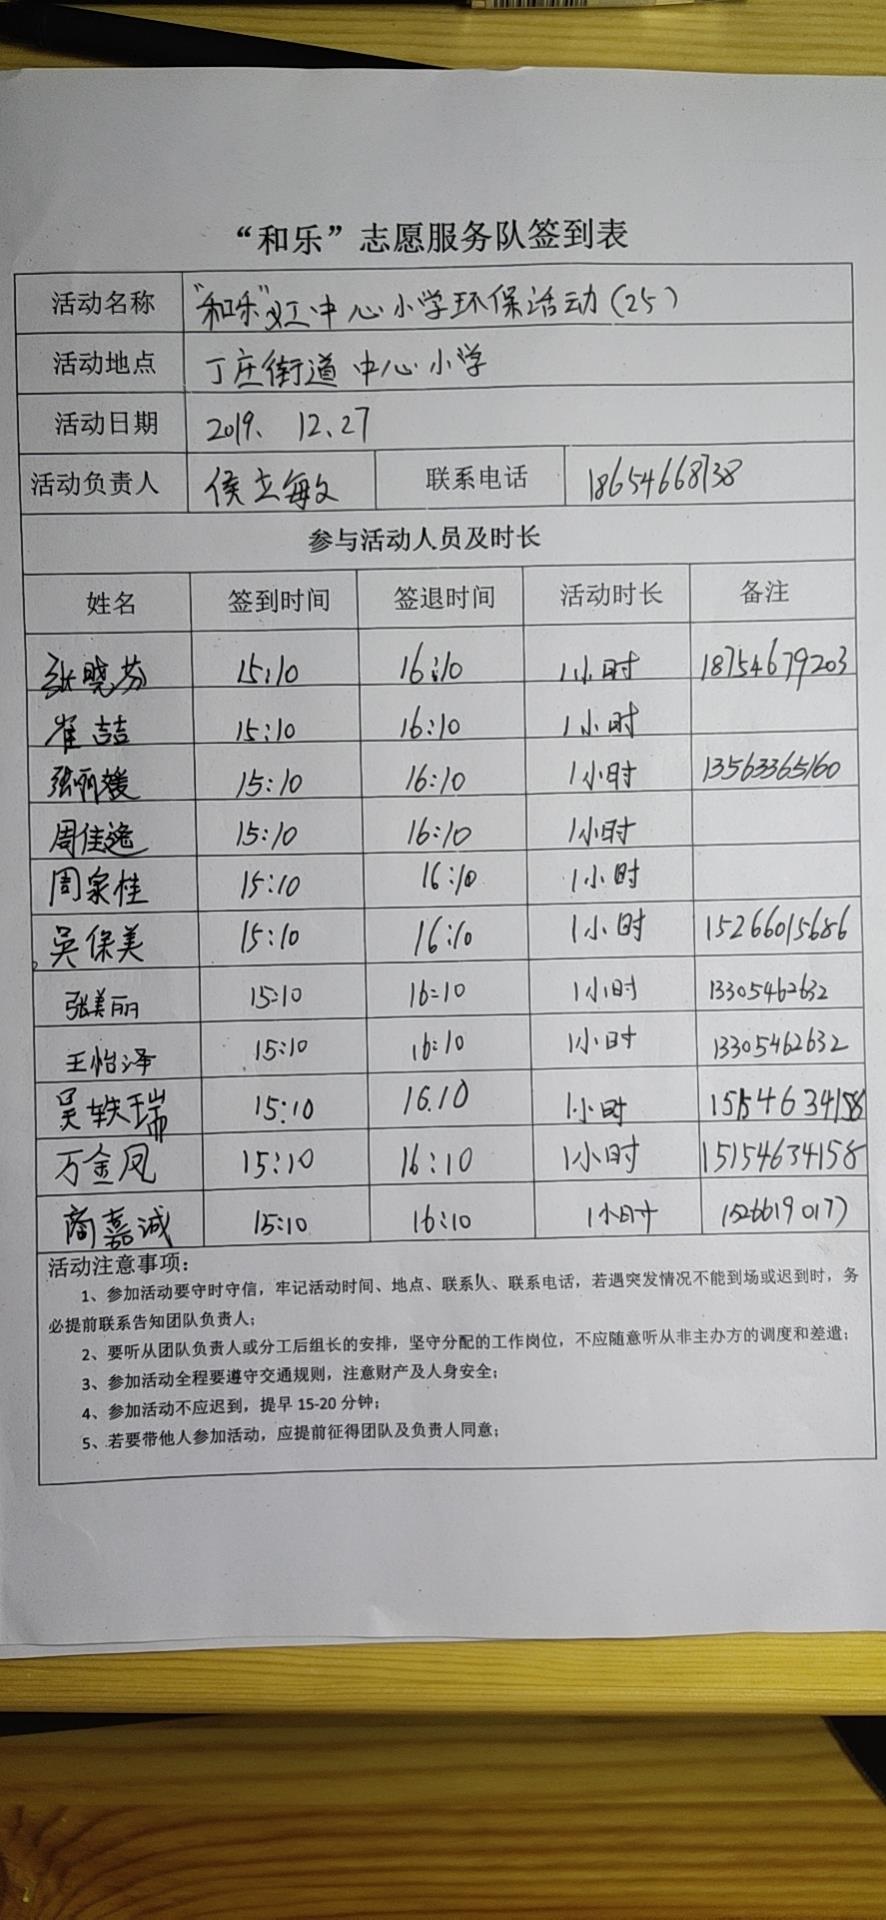 “和乐”志愿服务队签到表
活动名称 “和乐”义工中心小学环保活动(25)
活动地点 丁庄街道中心小学
活动日期 2019、12、27
活动负责人 侯立敏 联系电话 18654668738
参与活动人员及时长
姓名 签到时间 签退时间 活动时长 备注
张晓芬 15:10 16:10 1小时 18754679203
崔喆 15:10 16:10 1小时
张丽媛 15:10 16:10 1小时 13563365160
周佳逸 15:10 16:10 1小时
周家桂 15:10 16:10 1小时
吴保美 15:10 16:10 1小时 15266015686
张美丽 15:10 16:10 1小时 13305462632
王怡泽 15:10 16:10 1小时 13305462632
吴轶瑞 15:10 16.10 1小时 15154634158
万金凤 15:10 16:10 1小时 15154634158
商嘉诚 15:10 16:10 1小时 15266190177
活动注意事项：
1、参加活动要守时守信，牢记活动时间、地点、联系人、联系电话，若遇突发情况不能到场或迟到时，务
必提前联系告知团队负责人；
2、要听从团队负责人或分工后组长的安排，坚守分配的工作岗位，不应随意听从非主办方的调度和差遣；
3、参加活动全程要遵守交通规则，注意财产及人身安全；
4、参加活动不应迟到，提早 15-20 分钟；
5、若要带他人参加活动，应提前征得团队及负责人同意；